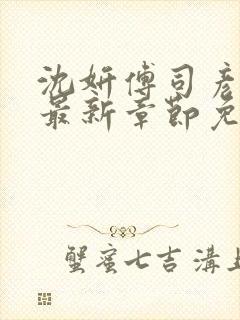 沈妍傅司彦
最新章节免
蟹蜜七吉溝上